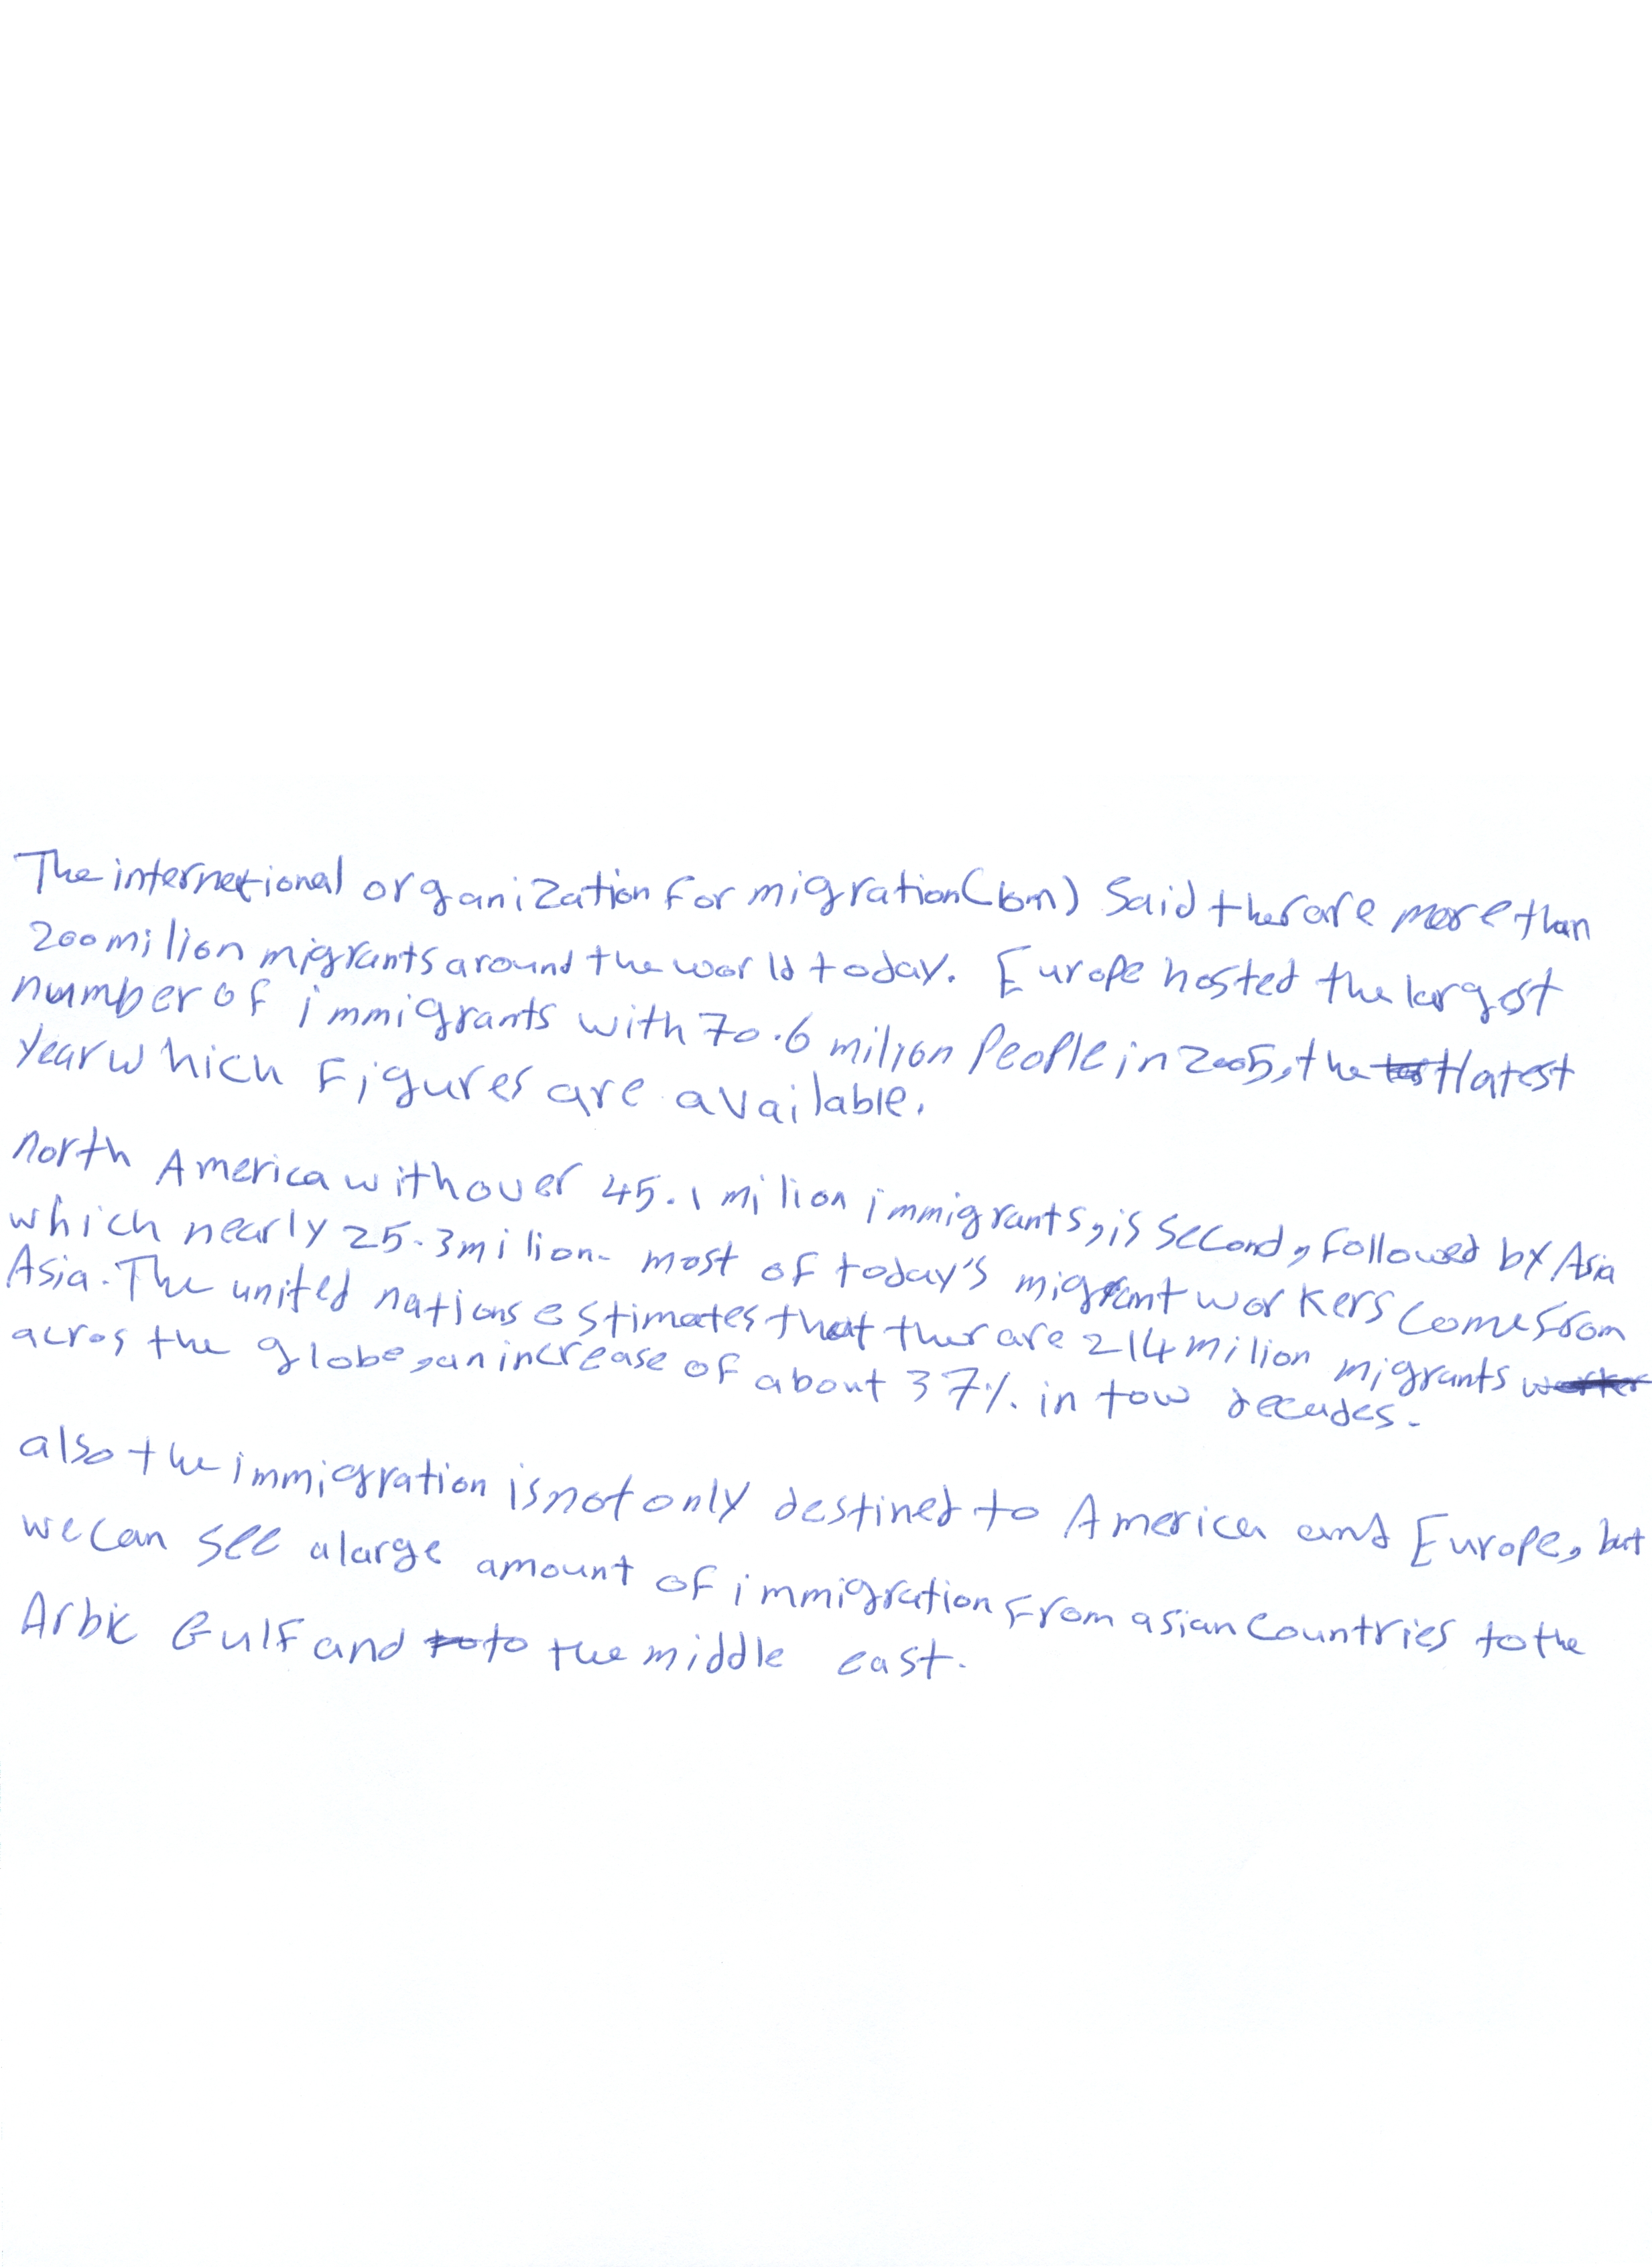 The international organization for migration (iom) said ther are more than
200 milion migrants around the world today. Europe hosted the largest
number of immigrants with 70.6 milion people in 2005, the latest
year which figures are available.
north America with over 45.1 milion immigrants, is second, followed by Asia
which nearly 25.3 milion. most of today's migrant workers come from
Asia. The united nations estimates that ther are 214 milion migrants
acros the globe, an increase of about 37% in tow decades.
also the immigration is not only destined to America and Europe, but
we can see a large amount of immigration from asian countries to the
Arbic Gulf and to the middle east.